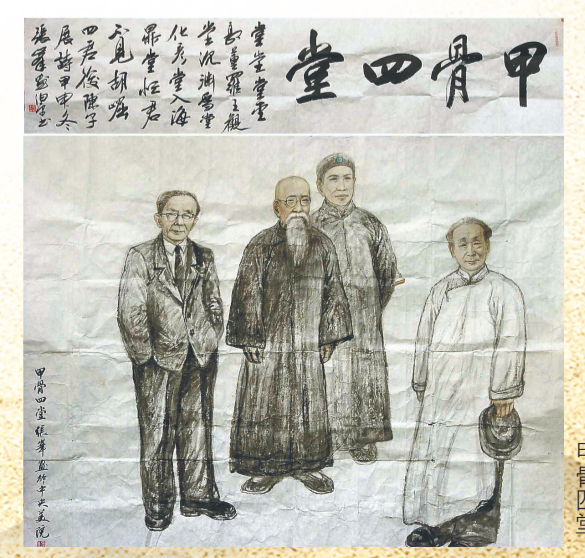 甲骨四堂
堂堂堂堂
郭董羅王觀
堂沉淵雪堂
化彥堂入海
鼎堂忙君
不見胡崛
四君後陳子
展詩甲申冬
甲骨四堂 張峯畫於中央美院
甲骨四堂